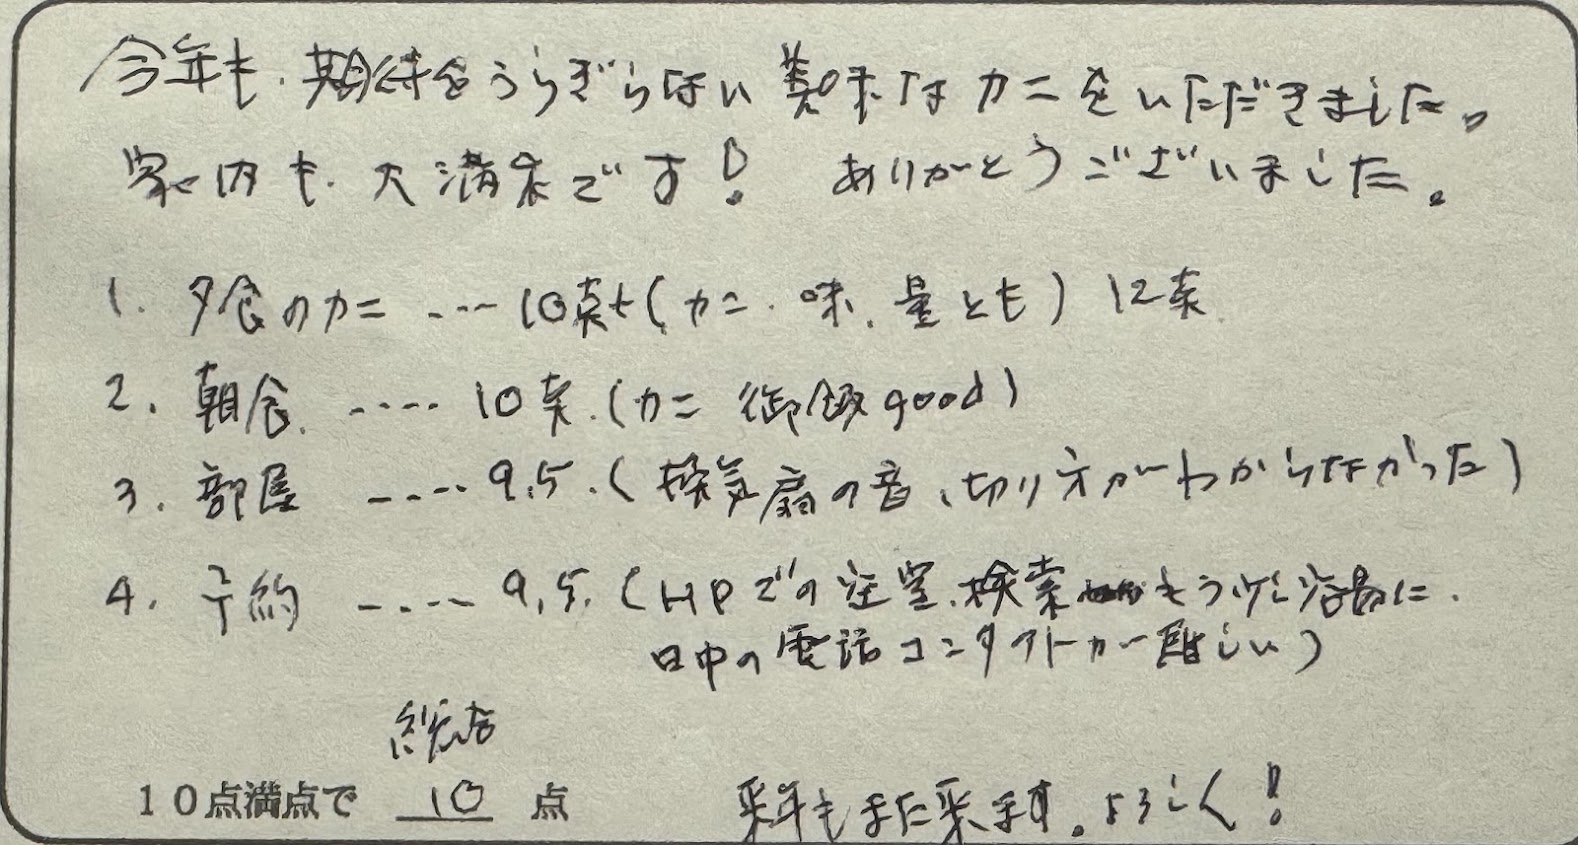 今年も、期待をうらぎらない美味なカニをいただきました。
家内も、大満足です! ありがとうございました。
1. 夕食のカニ ---- 10点+(カニ、味、量とも) 12点
2. 朝食 ---- 10点.(カニ 御飯good)
3. 部屋 ---- 9.5.(換気扇の音、切り方がわからなかった)
4. 予約 ---- 9.5.(HPでの空室、検索もう少し容易に.
日中の電話コンタクトが難しい)
総合
10点満点で 10 点 来年もまた来ます。よろしく!